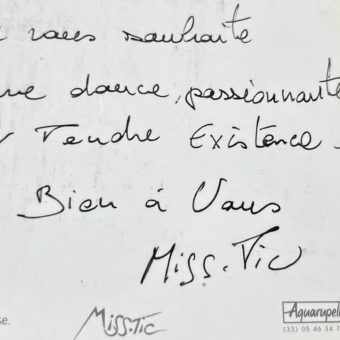 vous souhaite
une douce, passionnante
Tendre Existence.
Bien à Vous
Miss.Tic
Miss.Tic
se.
Aquarupel
(33) 05 46 34 7